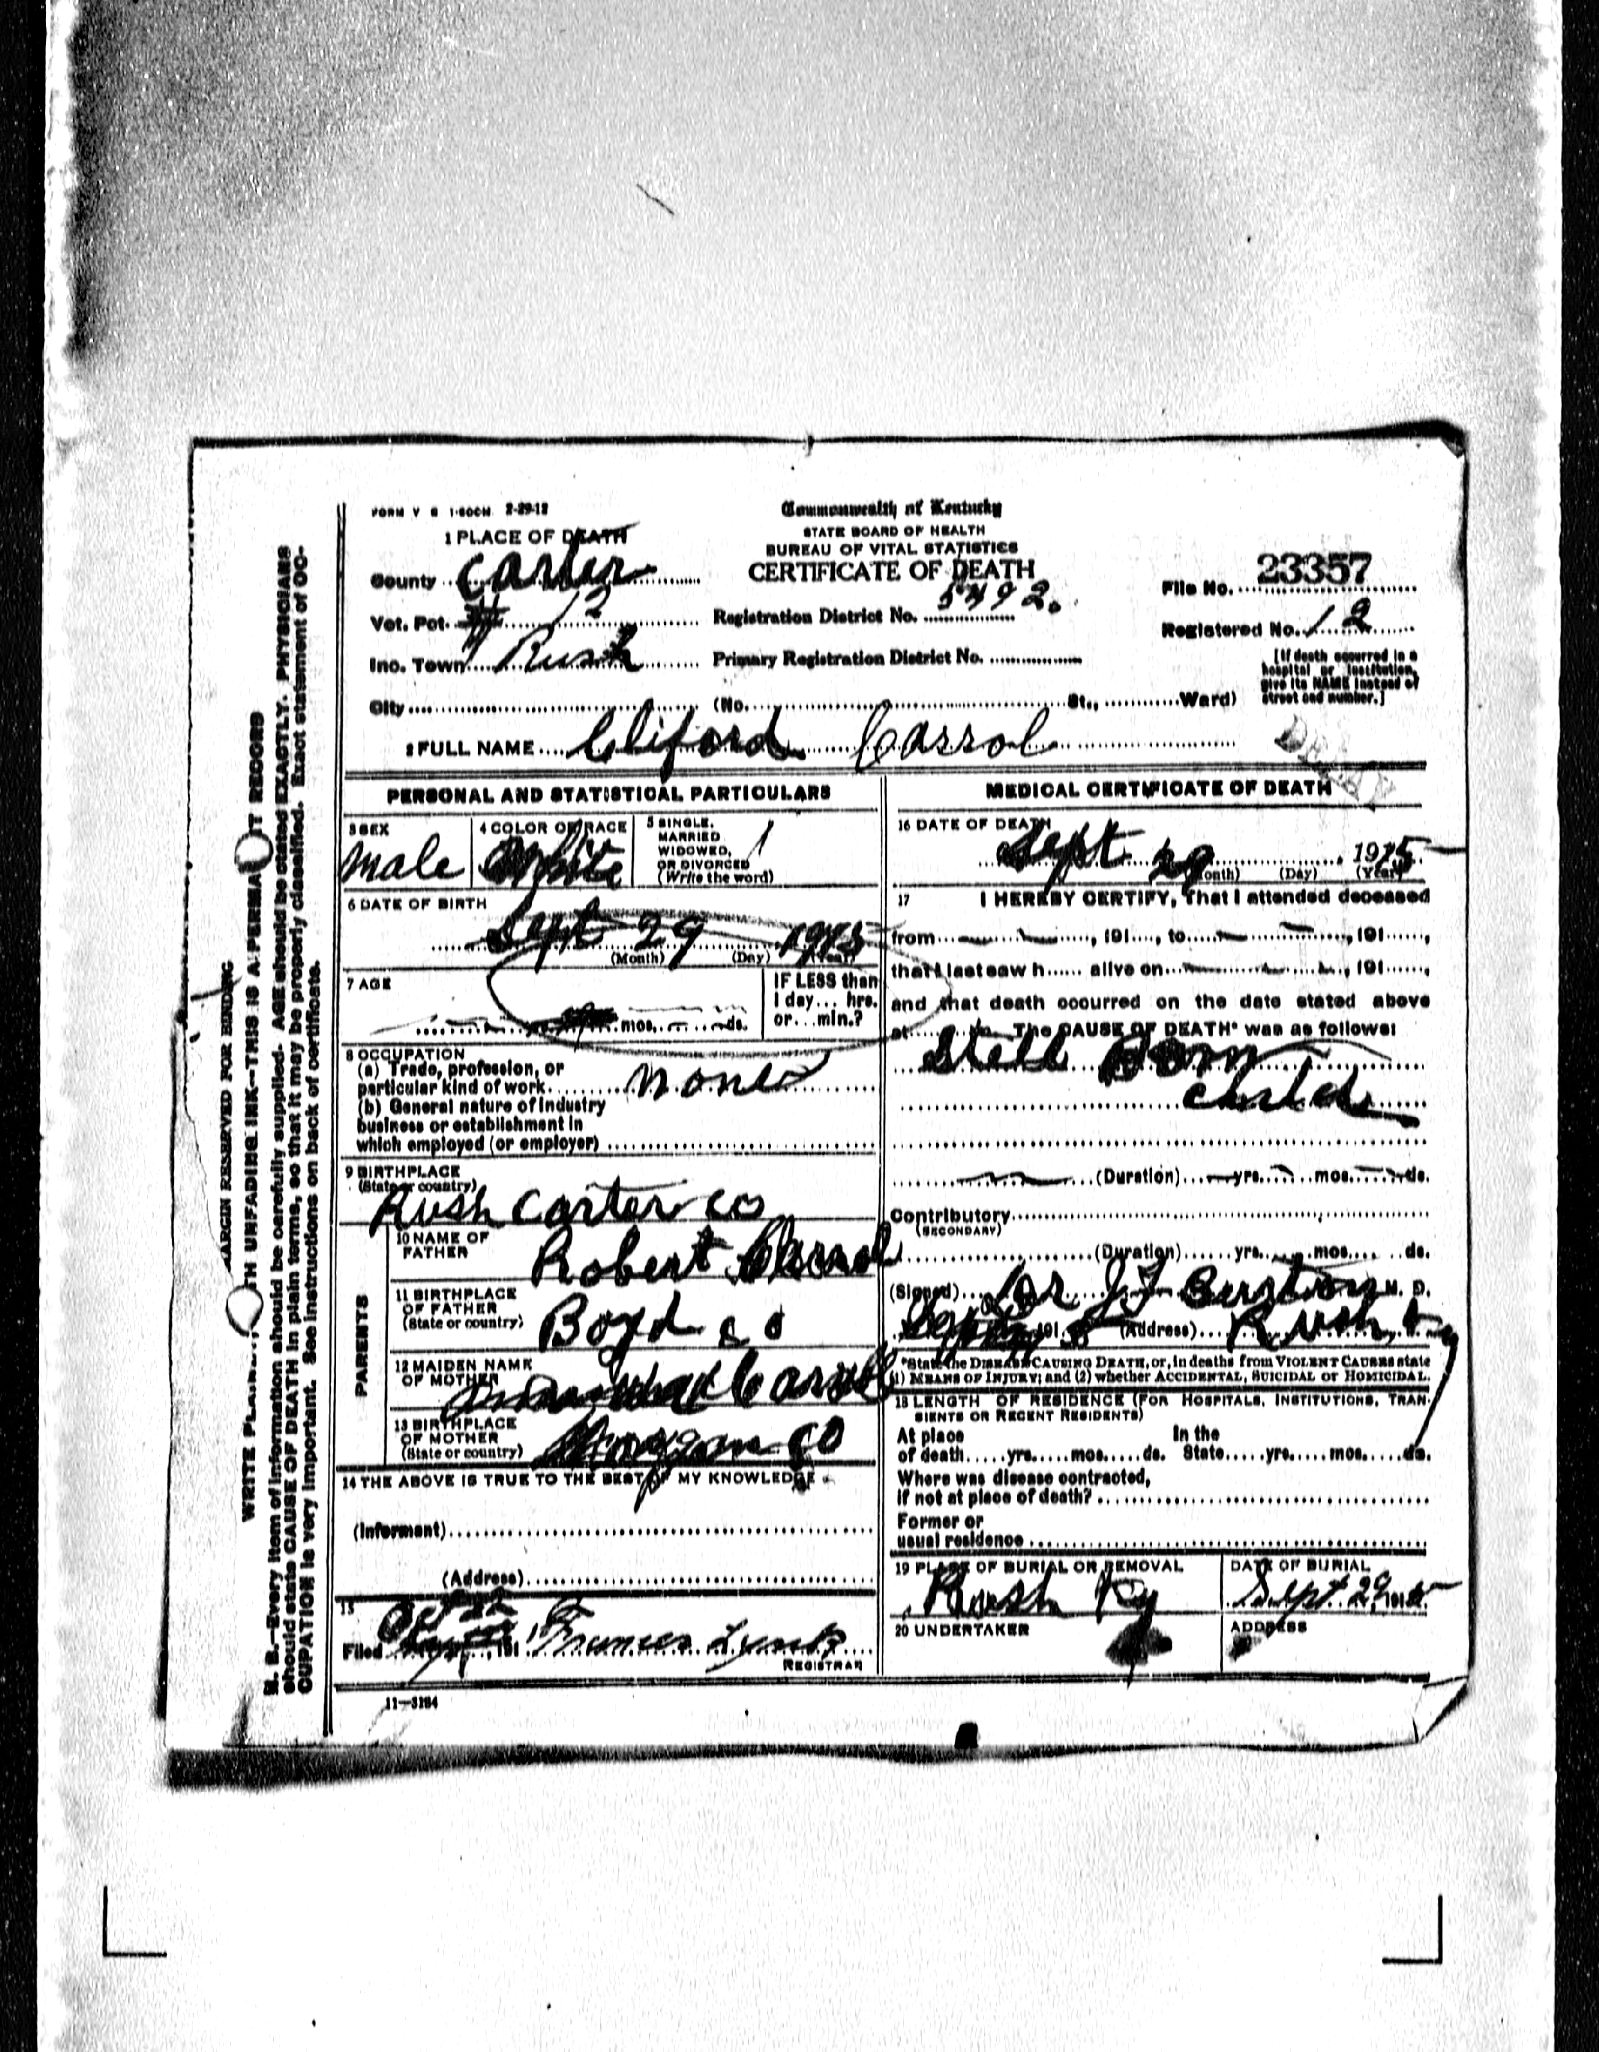 FORM V S 1-500M 2-29-12
Commonwealth of Kentucky
STATE BOARD OF HEALTH
BUREAU OF VITAL STATISTICS
CERTIFICATE OF DEATH
1 PLACE OF DEATH
County Carter
Vot. Pct. 12
Inc. Town Rush
City (No. St., Ward)
Registration District No. 5492.
Primary Registration District No.
File No. 23357
Registered No. 12
[If death occurred in a
hospital or institution,
give its NAME instead of
street and number.]
2 FULL NAME Cliford Carrol
PERSONAL AND STATISTICAL PARTICULARS
3 SEX
male
4 COLOR OR RACE
White
5 SINGLE,
MARRIED
WIDOWED,
OR DIVORCED
(Write the word)
6 DATE OF BIRTH
Sept 29 1915
(Month) (Day) (Year)
7 AGE
yrs. mos. ds.
IF LESS than
1 day... hrs.
or...min.?
8 OCCUPATION
(a) Trade, profession, or
particular kind of work none
(b) General nature of industry
business or establishment in
which employed (or employer)
9 BIRTHPLACE
(State or country)
Rush Carter co
PARENTS
10 NAME OF
FATHER
Robert Carrol
11 BIRTHPLACE
OF FATHER
(State or country)
Boyd co
12 MAIDEN NAME
OF MOTHER
13 BIRTHPLACE
OF MOTHER
(State or country)
Morgan co
14 THE ABOVE IS TRUE TO THE BEST OF MY KNOWLEDGE
(Informant)
(Address)
15
Filed Oct , 191 Frances
REGISTRAR
11—3184
MEDICAL CERTIFICATE OF DEATH
16 DATE OF DEATH
Sept 29 1915
(Month) (Day) (Year)
17 I HEREBY CERTIFY, That I attended deceased
from , 191 , to , 191 ,
that I last saw h alive on , 191 ,
and that death occurred on the date stated above
at m. The CAUSE OF DEATH* was as follows:
Still Born
child
(Duration) yrs. mos. ds.
Contributory
(SECONDARY)
(Duration) yrs. mos. ds.
(Signed) Dr J M. D.
191 (Address) Rush, Ky
*State the DISEASE CAUSING DEATH, or, in deaths from VIOLENT CAUSES state
(1) MEANS OF INJURY; and (2) whether ACCIDENTAL, SUICIDAL or HOMICIDAL.
18 LENGTH OF RESIDENCE (FOR HOSPITALS, INSTITUTIONS, TRAN-
SIENTS OR RECENT RESIDENTS)
At place In the
of death yrs. mos. ds. State yrs. mos. ds.
Where was disease contracted,
if not at place of death?
Former or
usual residence
19 PLACE OF BURIAL OR REMOVAL
Rush Ky
DATE OF BURIAL
Sept. 29 1915
20 UNDERTAKER
ADDRESS
MARGIN RESERVED FOR BINDING
WRITE PLAINLY, WITH UNFADING INK—THIS IS A PERMANENT RECORD
N. B.—Every item of information should be carefully supplied. AGE should be stated EXACTLY. PHYSICIANS
should state CAUSE OF DEATH in plain terms, so that it may be properly classified. Exact statement of OC-
CUPATION is very important. See instructions on back of certificate.